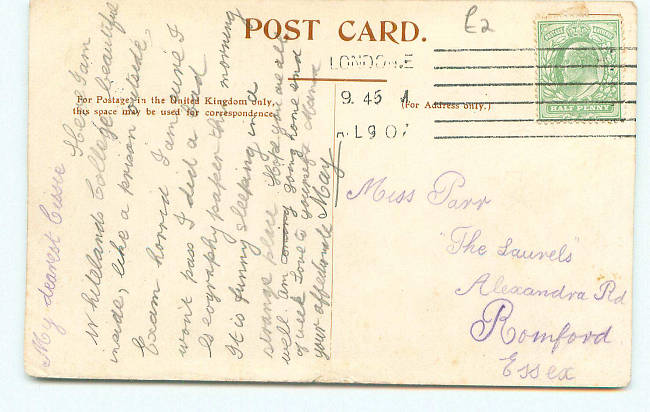 POST CARD.
£2
LONDON.E
9.45 A
JL 9 07
HALF PENNY
For Postage in the United Kingdom only,
this space may be used for correspondence.
(For Address only.)
Miss Parr
"The Laurels"
Alexandra Rd
Romford
Essex
My dearest Cissie Here I am
Whitelands College, beautiful
inside, like a prison outside,
Exam horrid I am sure I
won't pass I did a bad
Geography paper this morning
It is funny sleeping in a
strange place Hope you are all
well. am going home end
of week Love to yourself & Mama
your affectionate May